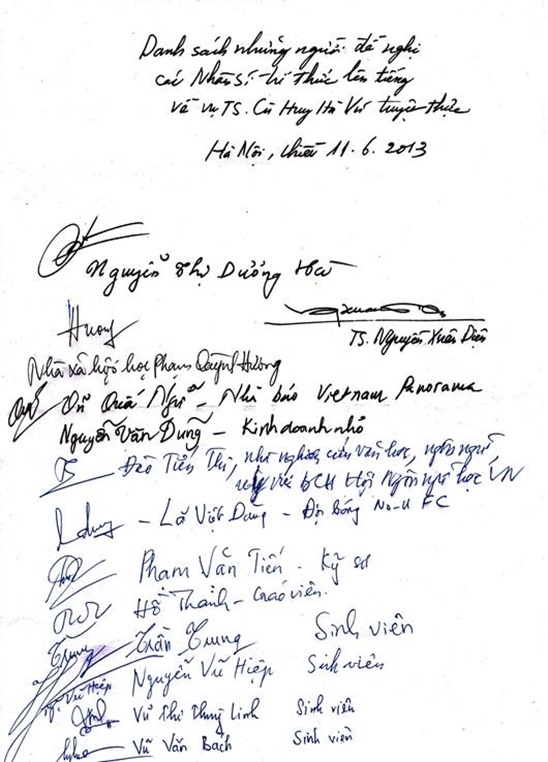 Danh sách những người đề nghị
các Nhân sĩ trí thức lên tiếng
về vụ TS. Cù Huy Hà Vũ tuyệt thực
Hà Nội, chiều 11.6.2013
Nguyễn Thị Dương Hà
Hương
TS. Nguyễn Xuân Diện
Nhà xã hội học Phạm Quỳnh Hương
Nhà báo Vietnam Panorama
Nguyễn Văn Dũng - Kinh doanh nhỏ
Đào Tiến Thi, nhà nghiên cứu văn học, ngôn ngữ,
uỷ viên BCH Hội Ngôn ngữ học VN
Ldung - Lã Việt Dũng - Đội bóng No-U FC
Phạm Văn Tiến - Kỹ sư
Hồ Thanh - Giáo viên.
Trung Trần Trung Sinh viên
Vũ Hiệp Nguyễn Vũ Hiệp Sinh viên
Vũ Thị Thùy Linh Sinh viên
Vũ Văn Bách Sinh viên